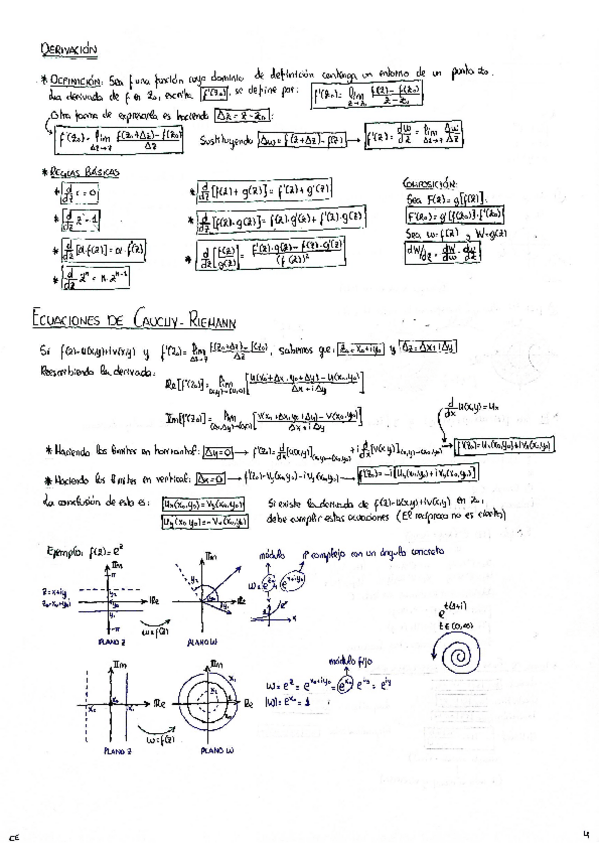 DERIVACIÓN
* DEFINICIÓN: Sea f una función cuyo dominio de definición contenga un entorno de un punto z₀.
La derivada de f en z₀, escrita f'(z₀), se define por: f'(z₀) = lim z→z₀ (f(z) - f(z₀))/(z - z₀)
Otra forma de expresarla es haciendo Δz = z - z₀:
f'(z₀) = lim Δz→0 (f(z₀+Δz) - f(z₀))/Δz Sustituyendo Δw = f(z+Δz) - f(z) → f'(z) = dw/dz = lim Δz→0 Δw/Δz
* REGLAS BÁSICAS
* d/dz c = 0 * d/dz [f(z) + g(z)] = f'(z) + g'(z)
* d/dz z = 1 * d/dz [f(z)·g(z)] = f(z)·g'(z) + f'(z)·g(z)
* d/dz [α·f(z)] = α·f'(z) * d/dz [f(z)/g(z)] =
* d/dz zⁿ = n·zⁿ⁻¹
COMPOSICIÓN:
Sea F(z) = g[f(z)].
F'(z₀) = g'[f(z₀)]·f'(z₀)
Sea w = f(z) y W = g(z)
dW/dz = dW/dw · dw/dz
ECUACIONES DE CAUCHY-RIEMANN
Si f(z) = u(x,y) + iv(x,y) y f'(z₀) = lim Δz→0 (f(z₀+Δz) - f(z₀))/Δz, sabimos que: z₀ = x₀ + iy₀ y Δz = Δx + iΔy
Reescribiendo la derivada:
Re[f'(z₀)] = lim (Δx,Δy)→(0,0) [(u(x₀+Δx, y₀+Δy) - u(x₀,y₀))/(Δx + iΔy)]
Im[f'(z₀)] = lim (Δx,Δy)→(0,0) [(v(x₀+Δx, y₀+Δy) - v(x₀,y₀))/(Δx + iΔy)]
d/dx u(x,y) = uₓ
* Haciendo los límites en horizontal: Δy = 0 → f'(z₀) = d/dx [u(x,y)] (x,y)→(x₀,y₀) + i d/dx [v(x,y)] (x,y)→(x₀,y₀) → f'(z₀) = uₓ(x₀,y₀) + ivₓ(x₀,y₀)
* Haciendo los límites en vertical: Δx = 0 → f'(z₀) = v_y(x₀,y₀) - i u_y(x₀,y₀) → f'(z₀) = -i[u_y(x₀,y₀) + i v_y(x₀,y₀)]
La conclusión de esto es: uₓ(x₀,y₀) = v_y(x₀,y₀) Si existe la derivada de f(z) = u(x,y) + iv(x,y) en z₀,
u_y(x₀,y₀) = -vₓ(x₀,y₀) debe cumplir estas ecuaciones (El recíproco no es cierto)
Ejemplo: f(z) = e^z
módulo nº complejo con un ángulo concreto
Im
π
z = x+iy
y₂
y₀
y₁
-π
Re
PLANO Z
w = f(z)
Im
y₂
y₁
Re
PLANO W
x
e^t(1+i)
t∈(0,∞)
Im
x₁
x₀
x₂
Re
PLANO Z
w = f(z)
Im
x₁
1
Re
PLANO W
módulo fijo
w = e^z = e^(x₀+iy₀) = e^x₀ e^iy = e^iy
|w| = e^x₀ = 1
CE
4